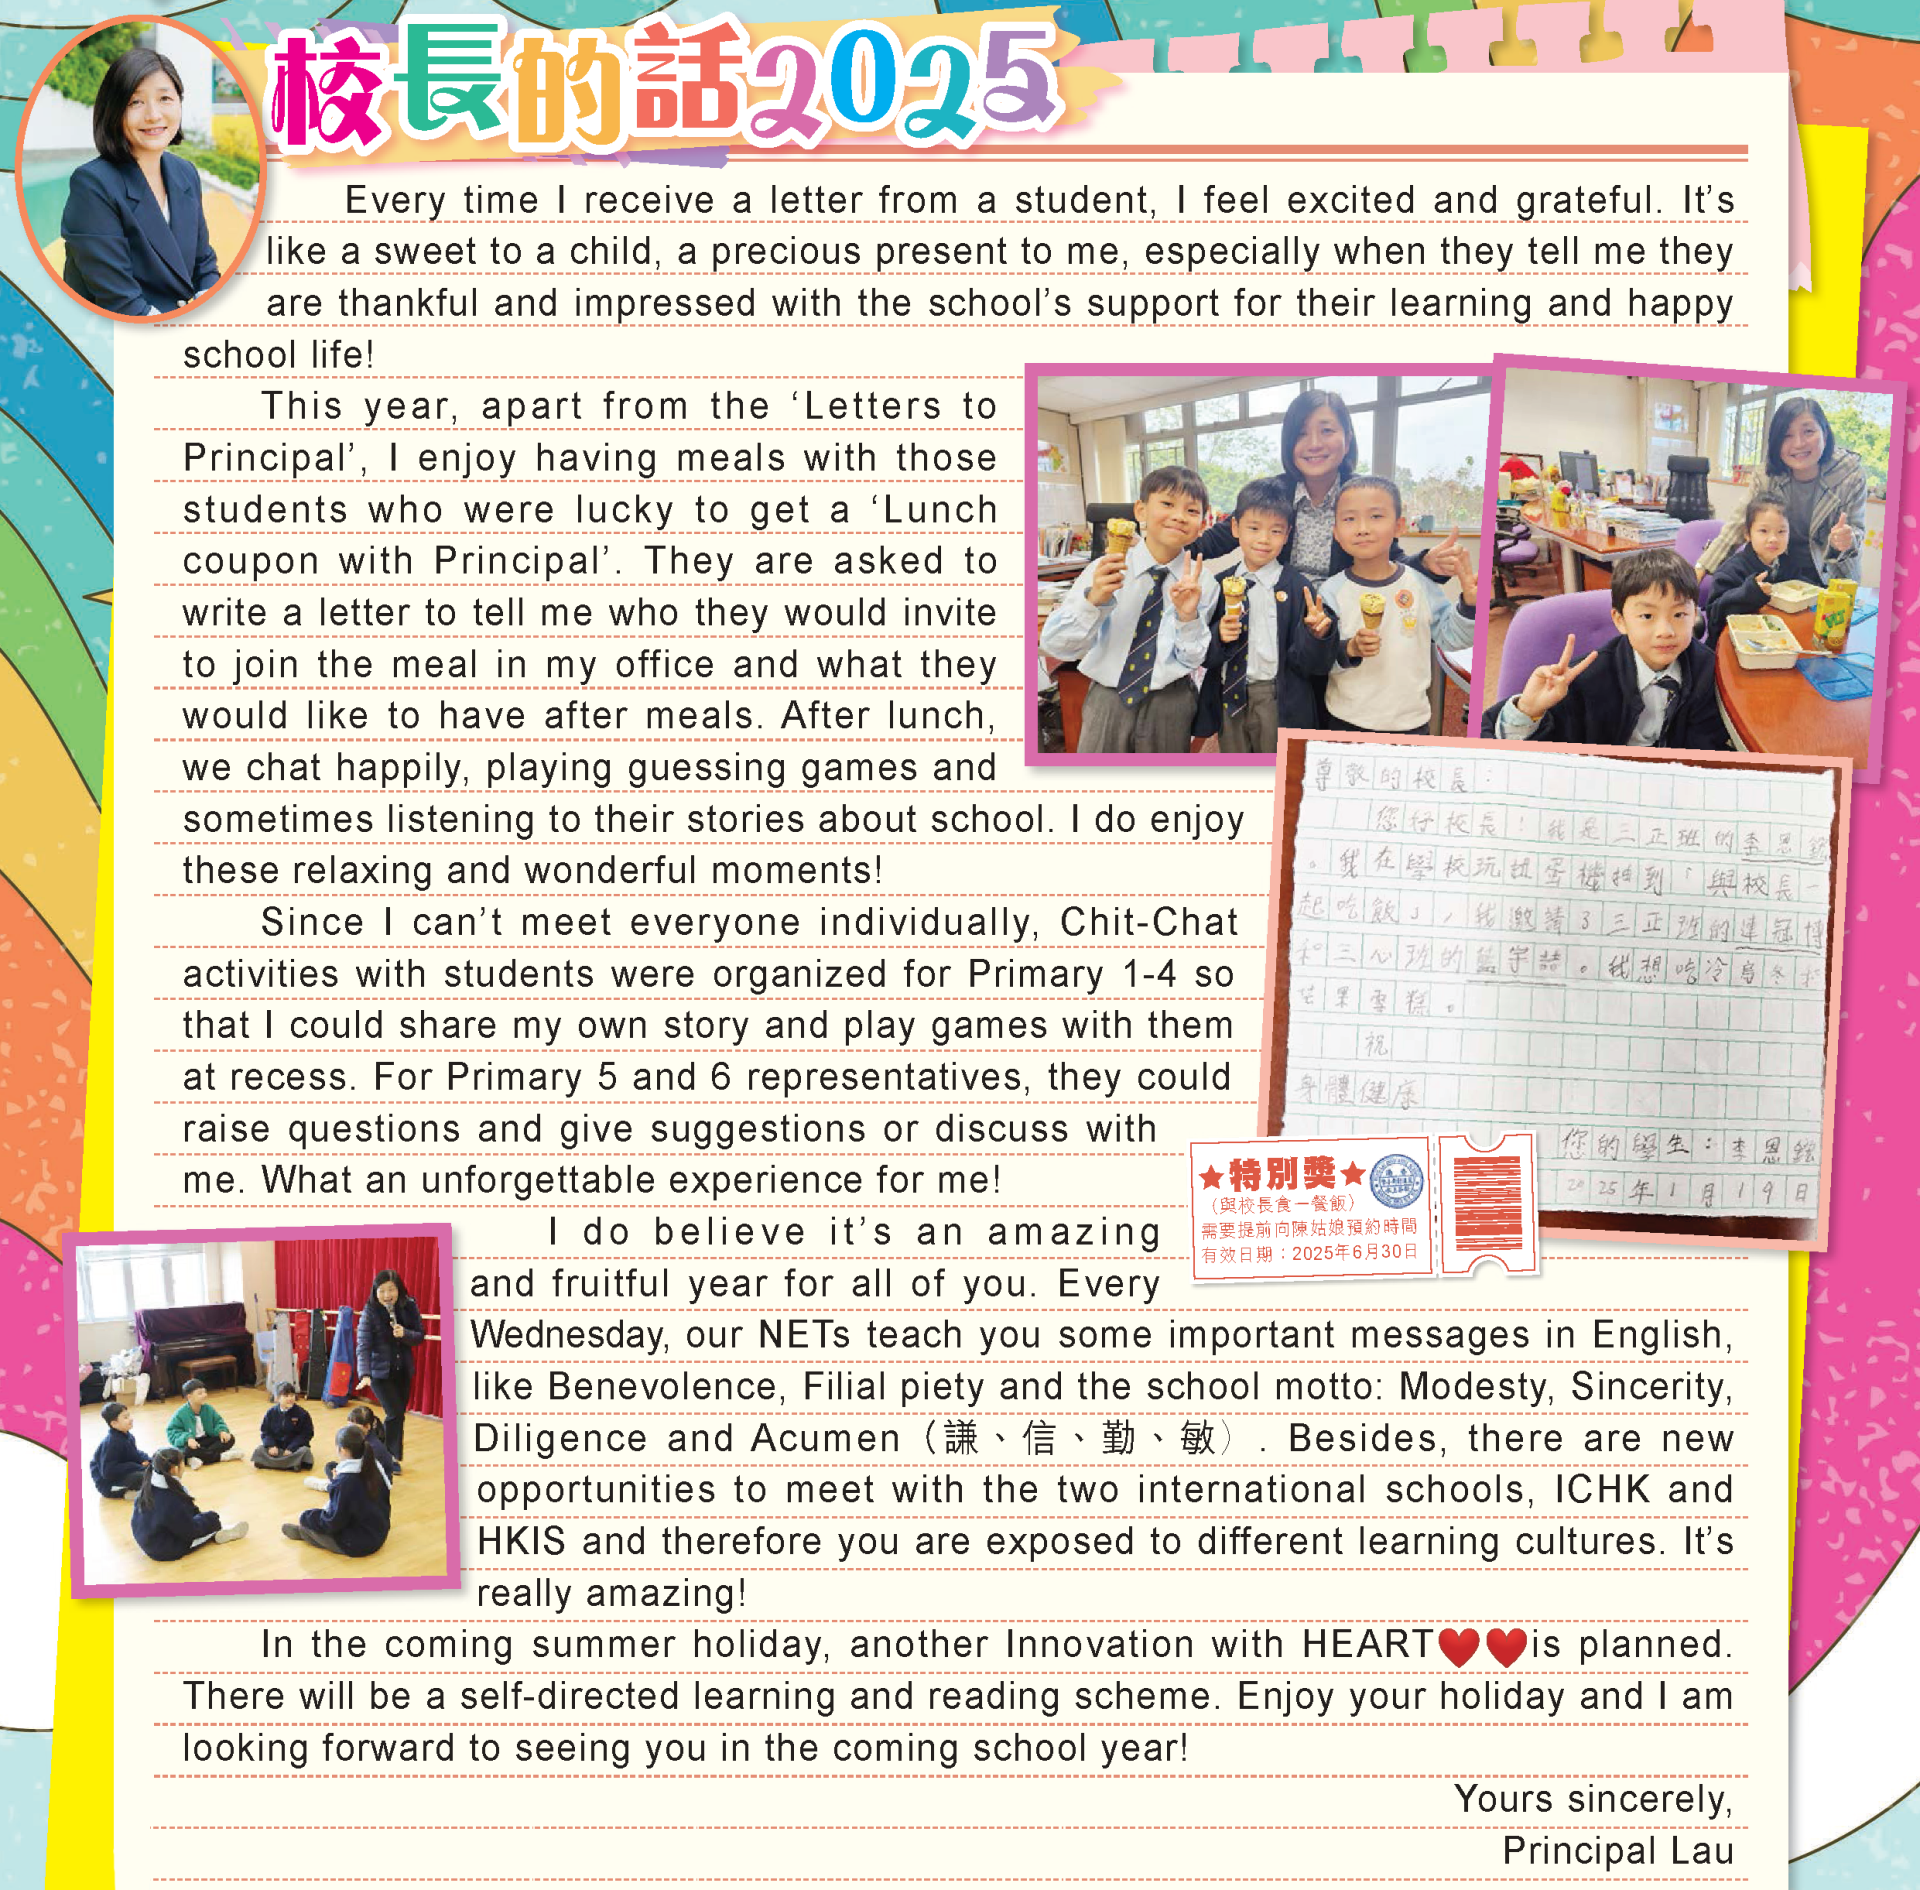 校長的話2025
Every time I receive a letter from a student, I feel excited and grateful. It’s
like a sweet to a child, a precious present to me, especially when they tell me they
are thankful and impressed with the school’s support for their learning and happy
school life!
This year, apart from the ‘Letters to
Principal’, I enjoy having meals with those
students who were lucky to get a ‘Lunch
coupon with Principal’. They are asked to
write a letter to tell me who they would invite
to join the meal in my office and what they
would like to have after meals. After lunch,
we chat happily, playing guessing games and
sometimes listening to their stories about school. I do enjoy
these relaxing and wonderful moments!
Since I can’t meet everyone individually, Chit-Chat
activities with students were organized for Primary 1-4 so
that I could share my own story and play games with them
at recess. For Primary 5 and 6 representatives, they could
raise questions and give suggestions or discuss with
me. What an unforgettable experience for me!
I do believe it’s an amazing
and fruitful year for all of you. Every
Wednesday, our NETs teach you some important messages in English,
like Benevolence, Filial piety and the school motto: Modesty, Sincerity,
Diligence and Acumen（謙、信、勤、敏）. Besides, there are new
opportunities to meet with the two international schools, ICHK and
HKIS and therefore you are exposed to different learning cultures. It’s
really amazing!
In the coming summer holiday, another Innovation with HEART❤❤is planned.
There will be a self-directed learning and reading scheme. Enjoy your holiday and I am
looking forward to seeing you in the coming school year!
Yours sincerely,
Principal Lau
尊敬的校長：
您好校長！我是三正班的李恩銘
。我在學校玩扭蛋機抽到「與校長一
起吃飯」，我邀請了三正班的連冠博
和三心班的藍宇喆。我想吃冷烏冬和
芒果雪糕。
祝
身體健康
您的學生：李恩銘
2025年1月19日
★特別獎★
（與校長食一餐飯）
需要提前向陳姑娘預約時間
有效日期：2025年6月30日